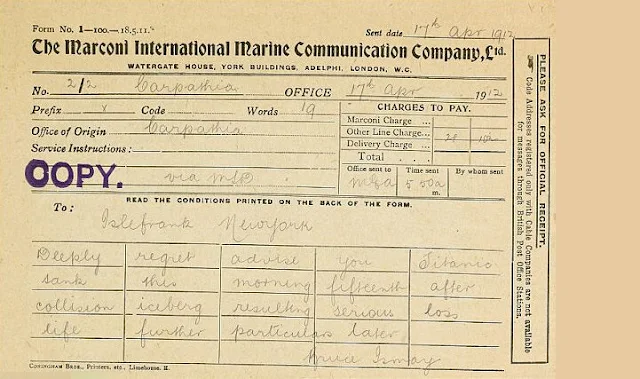 Form No. 1—100—18.5.11.
Sent date 17th Apr 1912
The Marconi International Marine Communication Company, Ltd.
WATERGATE HOUSE, YORK BUILDINGS, ADELPHI, LONDON, W.C.
No. 2/2 Carpathia OFFICE 17th Apr 1912
Prefix Code Words 19
CHARGES TO PAY.
Marconi Charge ...
Office of Origin Carpathia
Other Line Charge...
Delivery Charge ...
Service Instructions:
Total . .
COPY.
via
Office sent to Time sent By whom sent
m.
READ THE CONDITIONS PRINTED ON THE BACK OF THE FORM.
To: Islefrank Newyork
Deeply regret advise you Titanic
sank this morning fifteenth after
collision iceberg resulting serious loss
life further particulars later
Bruce Ismay
CONINGHAM BROS., Printers, etc., Limehouse, E.
PLEASE ASK FOR OFFICIAL RECEIPT.
Code Addresses registered only with Cable Companies are not available
for messages through British Post Office Stations.